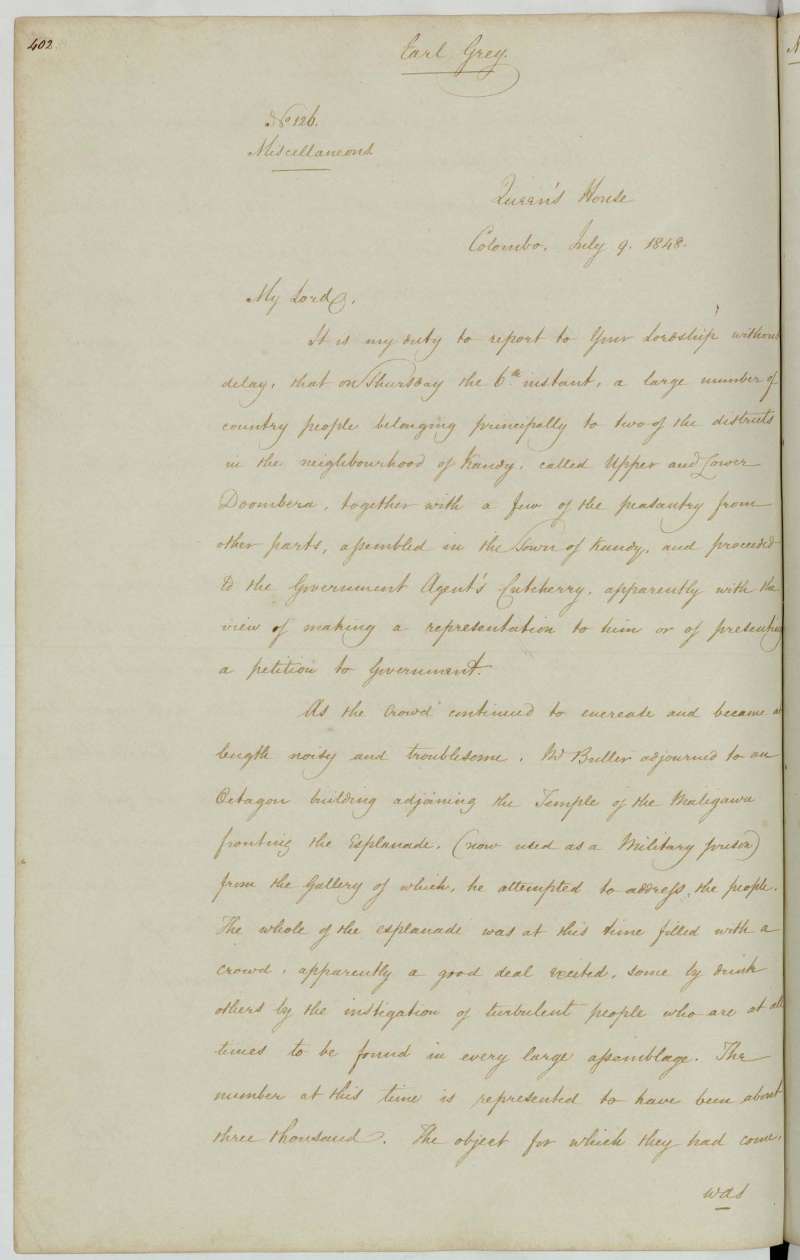 402
Earl Grey.
No 126.
Miscellaneous
Queen's House
Colombo. July 9. 1848.
My Lord,
It is my duty to report to Your Lordship without
delay, that on Thursday the 6th instant, a large number of
country people belonging principally to two of the districts
in the neighbourhood of Kandy, called Upper and Lower
Doombera, together with a few of the peasantry from
other parts, assembled in the Town of Kandy, and proceeded
to the Government Agent's Cutcherry, apparently with the
view of making a representation to him or of presenting
a petition to Government.
As the crowd continued to encrease and became at
length noisy and troublesome, Mr Buller adjourned to an
Octagon building adjoining the Temple of the Maligawa
fronting the Esplanade. (now used as a Military prison)
from the Gallery of which, he attempted to address the people.
The whole of the esplanade was at this time filled with a
crowd, apparently a good deal excited, some by drink
others by the instigation of turbulent people who are at all
times to be found in every large assemblage. The
number at this time is represented to have been about
three thousand. The object for which they had come,
was